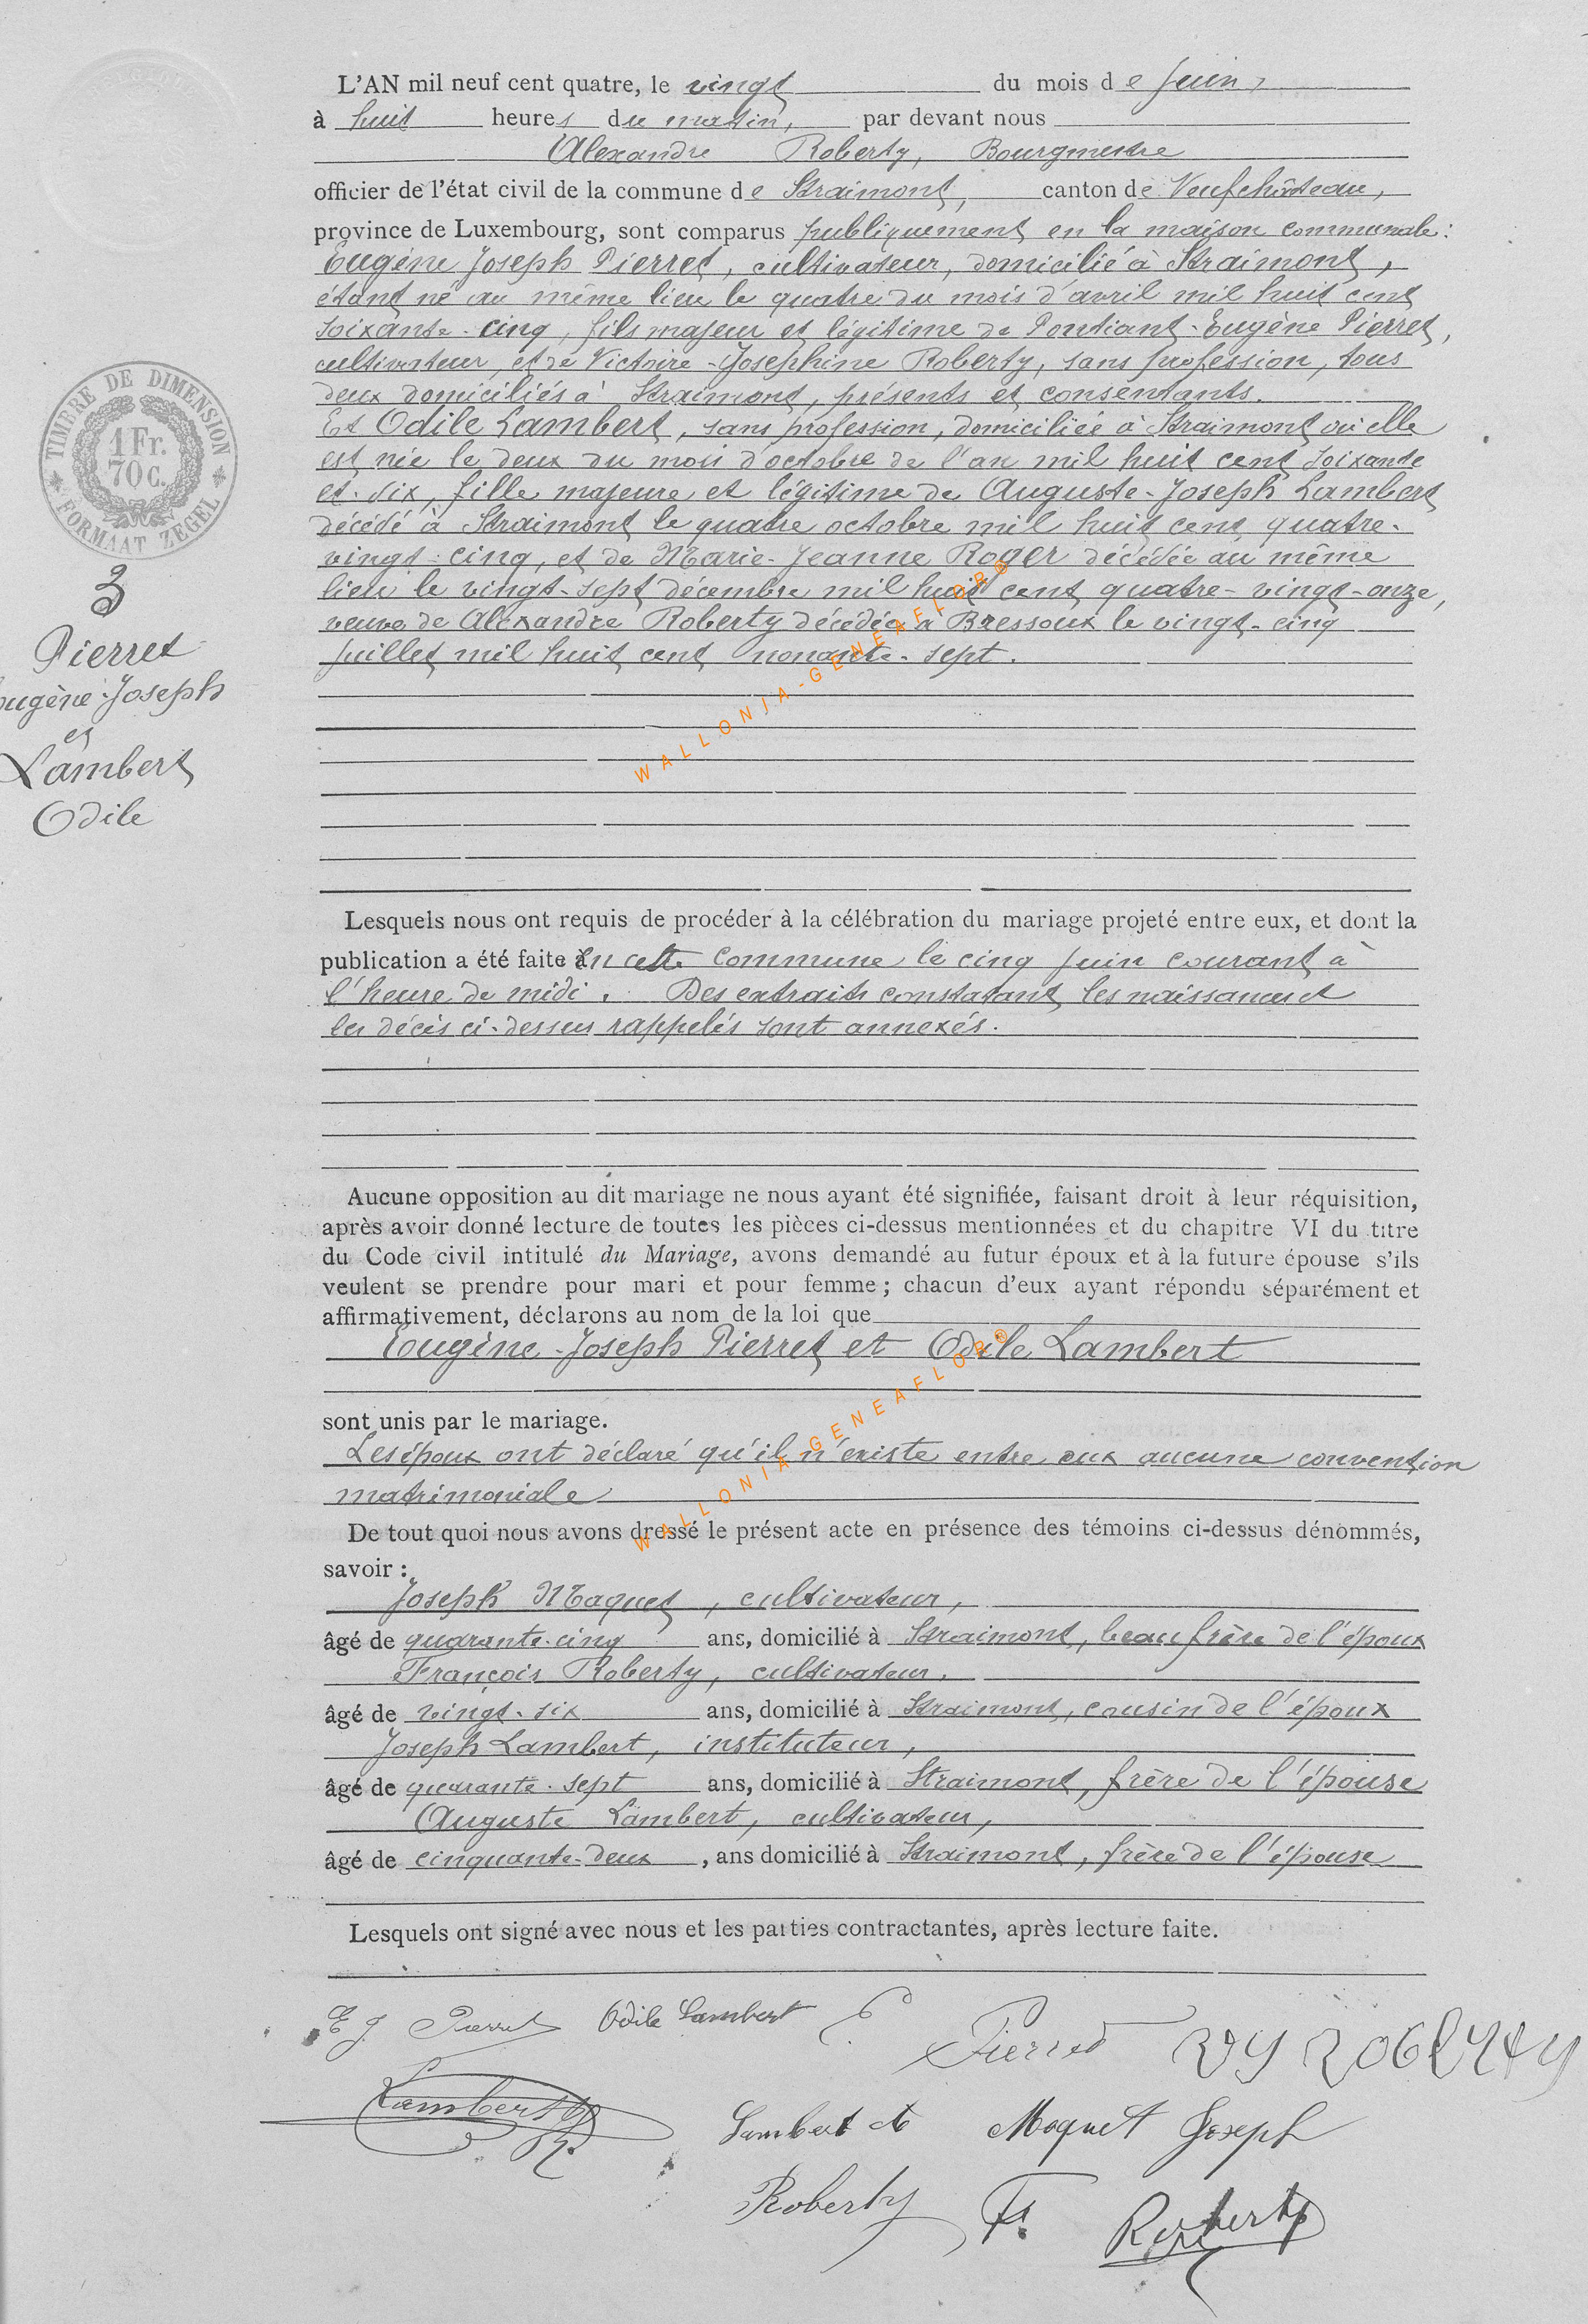 L'AN mil neuf cent quatre, le vingt du mois de Juin,
à huit heures du matin, par devant nous
Alexandre Roberty, Bourgmestre
officier de l'état civil de la commune de Straimont, canton de Neufchâteau,
province de Luxembourg, sont comparus publiquement en la maison communale:
Eugène Joseph Pierret, cultivateur, domicilié à Straimont,
étant né au même lieu le quatre du mois d'avril mil huit cent
soixante-cinq, fils majeur et légitime de Pontiant-Eugène Pierret,
cultivateur, et de Victoire-Josephine Roberty, sans profession, tous
deux domiciliés à Straimont, présents et consentants.
Et Odile Lambert, sans profession, domiciliée à Straimont où elle
est née le deux du mois d'octobre de l'an mil huit cent soixante
et-six, fille majeure et légitime de Auguste-Joseph Lambert
décédé à Straimont le quatre octobre mil huit cent quatre-
vingt-cinq, et de Marie-Jeanne Roger décédée au même
lieu le vingt-sept décembre mil huit cent quatre-vingt-onze,
veuve de Alexandre Roberty décédé à Bressoux le vingt-cinq
juillet mil huit cent nonante-sept.
TIMBRE DE DIMENSION
1 Fr.
70 c.
FORMAAT ZEGEL
3
Pierret
Eugène-Joseph
et
Lambert
Odile
WALLONIA-GENEAFLOR®
Lesquels nous ont requis de procéder à la célébration du mariage projeté entre eux, et dont la
publication a été faite en cette commune le cinq juin courant à
l'heure de midi. Des extraits constatant les naissances et
les décès ci-dessus rappelés sont annexés.
Aucune opposition au dit mariage ne nous ayant été signifiée, faisant droit à leur réquisition,
après avoir donné lecture de toutes les pièces ci-dessus mentionnées et du chapitre VI du titre
du Code civil intitulé du Mariage, avons demandé au futur époux et à la future épouse s'ils
veulent se prendre pour mari et pour femme; chacun d'eux ayant répondu séparément et
affirmativement, déclarons au nom de la loi que
Eugène-Joseph Pierret et Odile Lambert
sont unis par le mariage.
Les époux ont déclaré qu'il n'existe entre eux aucune convention
matrimoniale
WALLONIA-GENEAFLOR®
De tout quoi nous avons dressé le présent acte en présence des témoins ci-dessus dénommés,
savoir:
Joseph Maquet, cultivateur,
âgé de quarante-cinq ans, domicilié à Straimont, beau frère de l'époux
François Roberty, cultivateur.
âgé de vingt-six ans, domicilié à Straimont, cousin de l'époux
Joseph Lambert, instituteur,
âgé de quarante-sept ans, domicilié à Straimont, frère de l'épouse
Auguste Lambert, cultivateur,
âgé de cinquante-deux, ans domicilié à Straimont, frère de l'épouse
Lesquels ont signé avec nous et les parties contractantes, après lecture faite.
E J Pierret Odile Lambert E Pierret
Lambert Lambert Maquet Joseph
Roberty Fr. Roberty